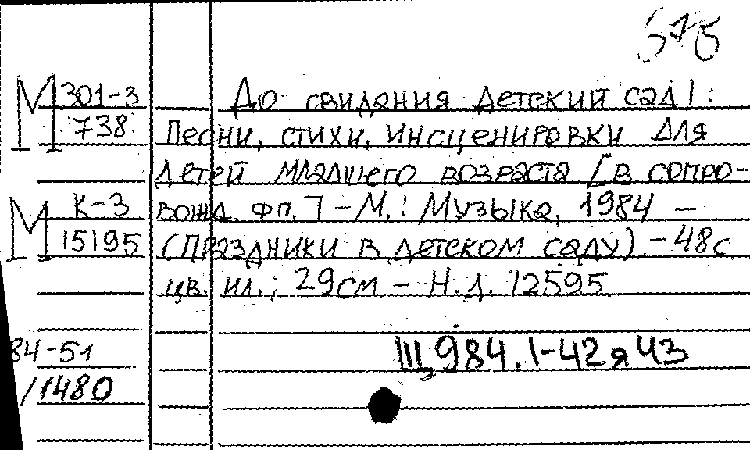 575
М 301-3 До свидания детский сад! :
738 Песни, стихи, инсценировки для
детей младшего возраста [в сопро-
М К-3 вожд. фп.] - М.: Музыка, 1984 -
15195 (Праздники в детском саду) - 48с
цв. ил.; 29см - Н.д. 12595
84-51 Щ984.1-42я43
/1480